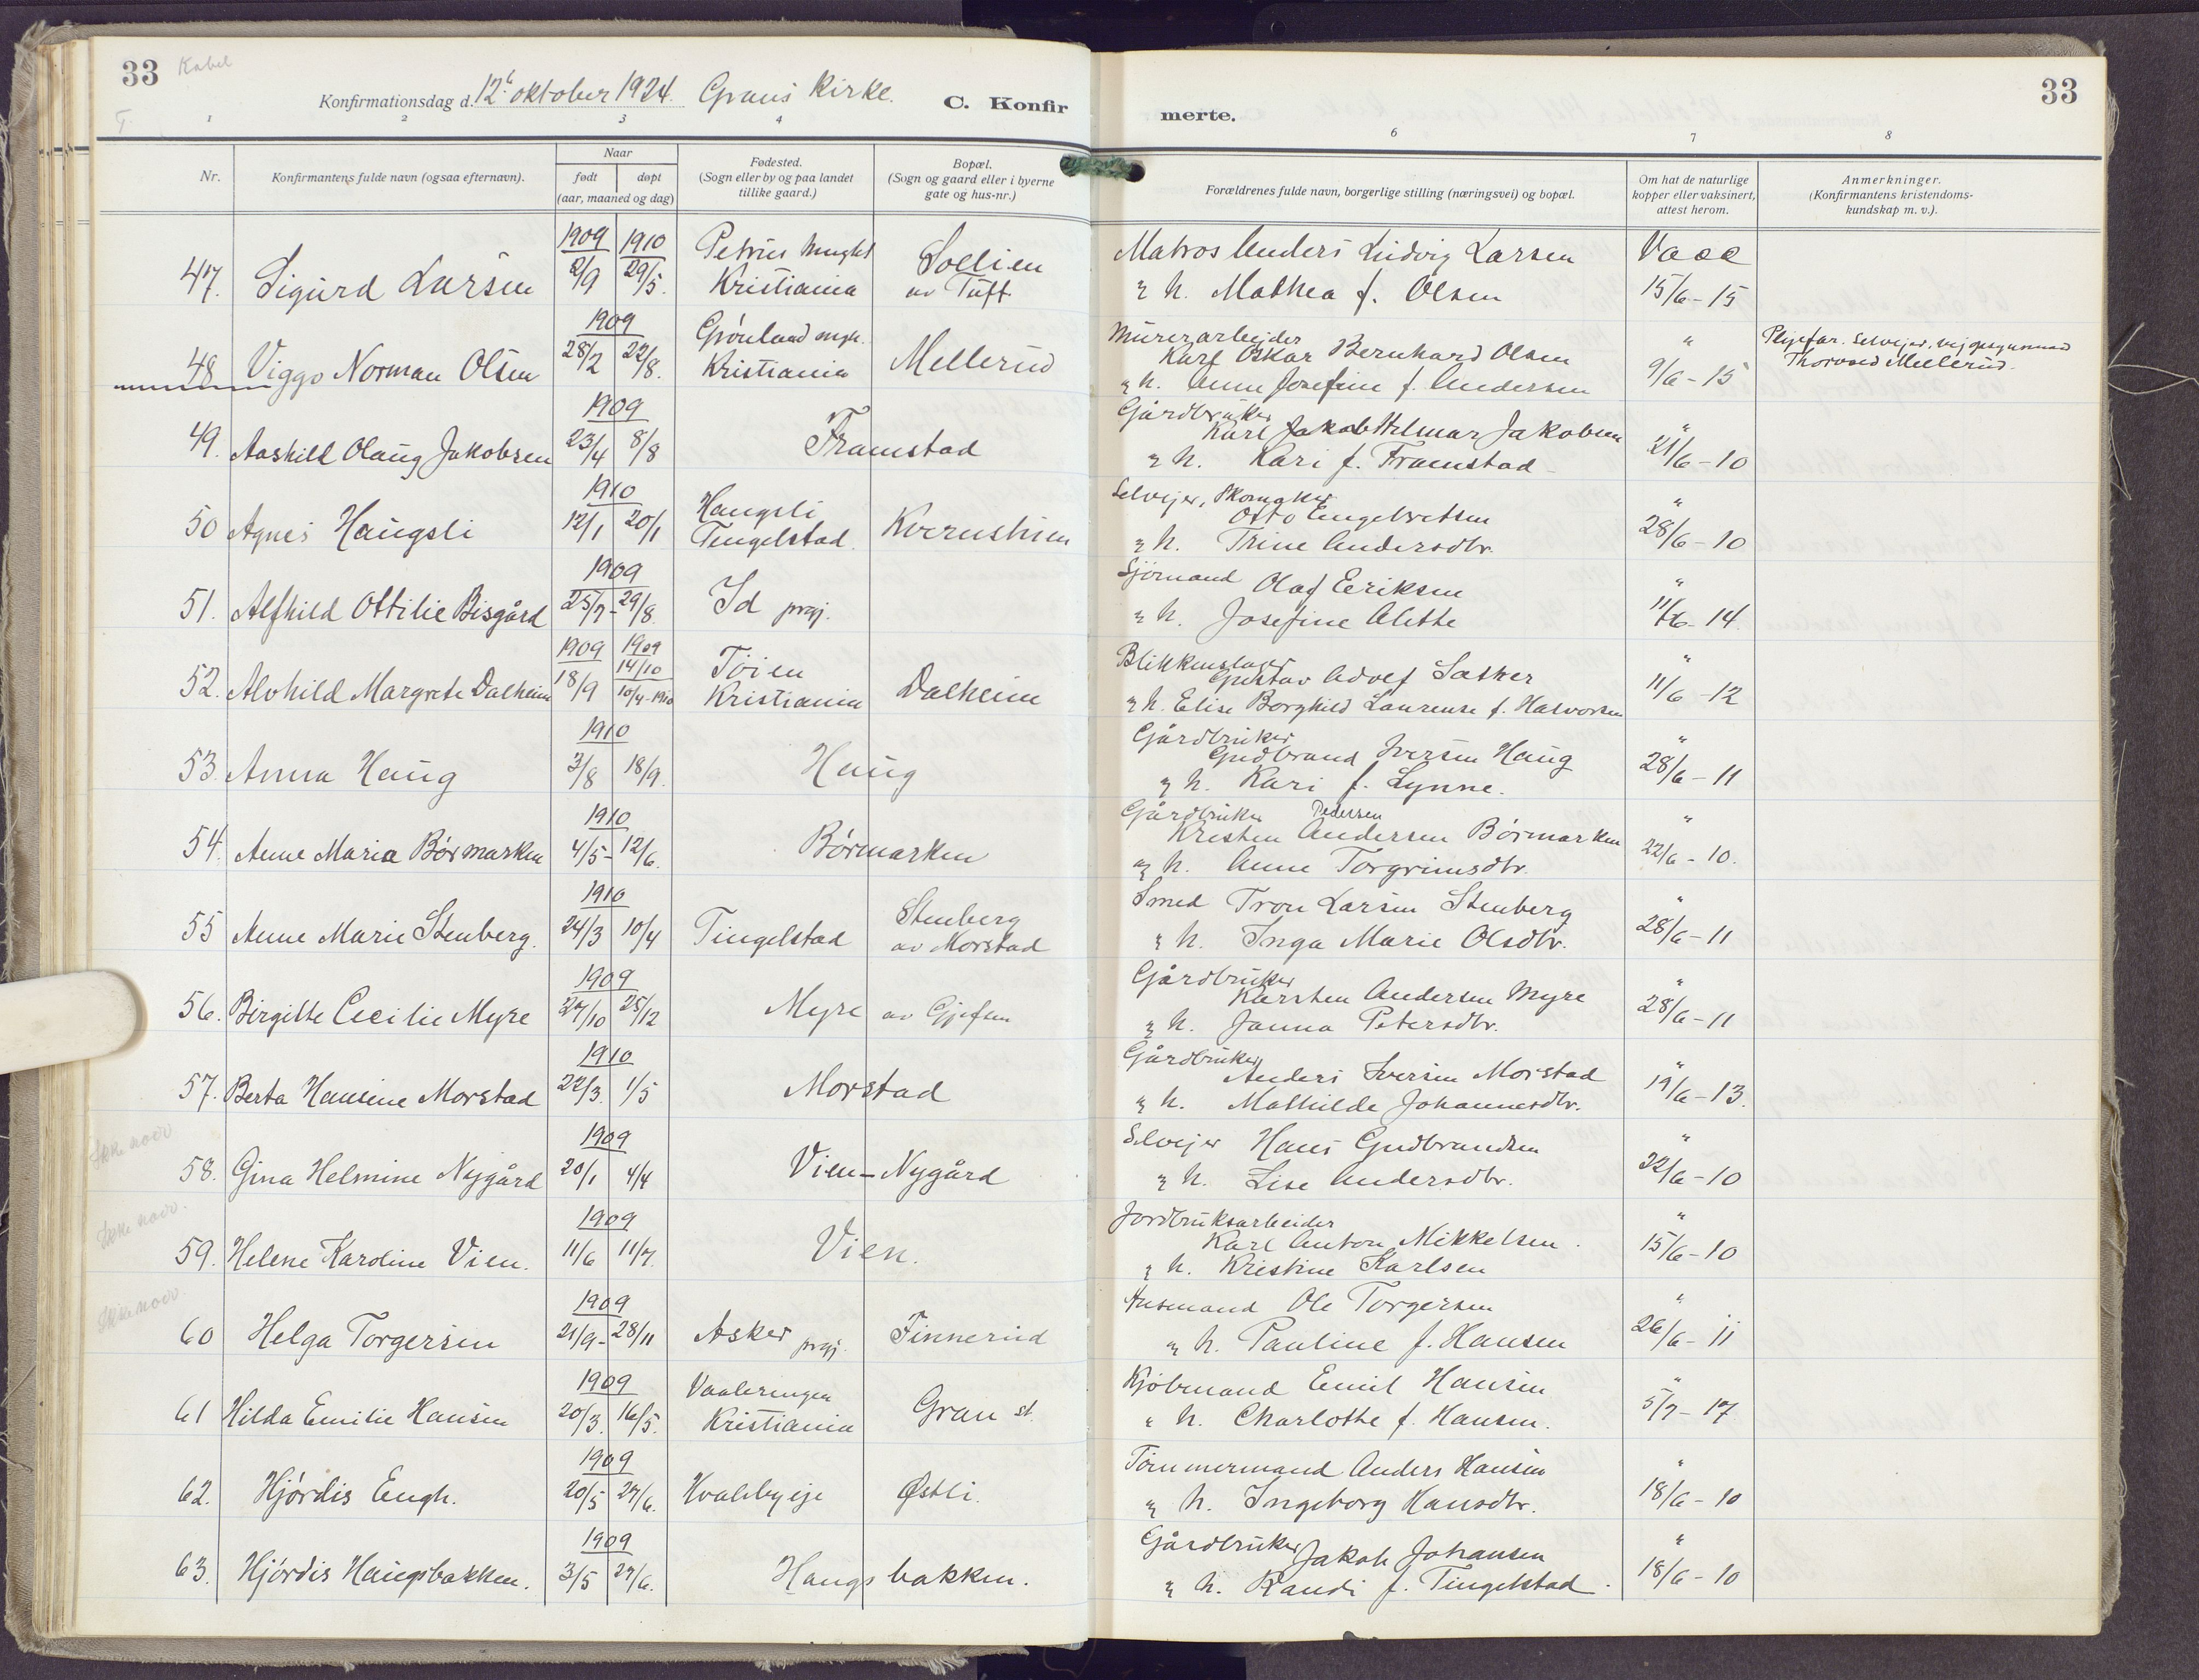 33 Kabel
Konfirmationsdag d. 12t oktober 1924. Grans kirke. C. Konfir
T.
1 2 3 4
Nr.
Konfirmantens fulde navn (ogsaa efternavn).
Naar
født døpt
(aar, maaned og dag)
Fødested.
(Sogn eller by og paa landet
tillike gaard.)
Bopæl.
(Sogn og gaard eller i byerne
gate og hus-nr.)
47. Sigurd Larsen 1909 2/9 1910 29/5. Petrus mught Kristiania Sollien av Tuft
48 Viggo Norman Olsen 1909 28/2 22/8. Grönland mgh. Kristiania Mellerud
49. Aashild Olaug Jakobsen 1909 23/4 8/8 Framstad
50 Agnes Haugsli 1910 12/1 20/1 Haugsli Tengelstad. Kvernstuen
51. Alfhild Ottilie Bisgård 1909 25/7-29/8. Id prgj.
52. Alvhild Margrete Dalheim 1909 18/9 1909 14/10 10/4-1910 Töien Kristiania Dalheim
53. Anna Haug 1910 3/8 18/9. Haug
54. Anne Maria Börmarken 1910 4/5-12/6. Börmarken
55 Anne Marie Stenberg. 1910 24/3 10/4 Tingelstad Stenberg av Morstad
56. Birgitte Cecilie Myre 1909 27/10 25/12 Myre av Gjefsen
57. Berta Hansine Morstad 1910 22/3. 1/5 Morstad
Ikke noer
58. Gina Helmine Nygård 1909 20/1 4/4 Vien-Nygård
Ikke noer.
59. Helene Karoline Vien. 1909 11/6 11/7. Vien.
Ikke noer.
60 Helga Torgersen 1909 21/9-28/11 Asker prgj. Finnerud
61 Hilda Emilie Hansen 1909 20/3. 16/5. Vaaleringen Kristiania Gran st.
62. Hjördis Engh. 1909 20/5 27/6. Hvalebyeje Østli.
63. Hjördis Haugsbakken. 1909 3/5 27/6. Haugsbakken.
33
merte.
6 7 8
Forældrenes fulde navn, borgerlige stilling (næringsvei) og bopæl.
Om hat de naturlige
kopper eller vaksinert,
attest herom.
Anmerkninger.
(Konfirmantens kristendoms-
kundskap m. v.).
Matros Anders Ludvig Larsen Vacc
& h. Mathea f. Olsen 15/6-15
Murerarbejder
Karl Oskar Bernhard Olsen " Plejefar. Selvejer,
& h. Anna Josefine f. Andersen 9/6-15 Thorvald Mellerud.
Gårdbruker
Karl Jakob Helmar Jakobsen "
& h. Kari f. Framstad 21/6-10
Selvejer, Skomaker
Otto Engebretsen "
& h. Trine Andersdtr. 28/6-10
Sjömand Olaf Eeriksen "
& h. Josefine Alette 11/6-14.
Blikkenslager
Gustav Adolf Sæther "
& h. Elise Borghild Laurense f. Halvorsen 11/6-12
Gårdbruker
Gudbrand Iversen Haug "
& h. Kari f. Lynne. 28/6-11
Gårdbruker Pedersen
Kresten Andersen Börmarken "
& h. Anne Torgrimsdtr. 22/6-10.
Smed Tron Larsen Stenberg "
& h. Inga Marie Olsdtr. 28/6-11
Gårdbruker
Karsten Andersen Myre "
& h. Janna Petersdtr. 28/6-11
Gårdbruker
Anders Iversen Morstad "
& h. Mathilde Johannesdtr. 19/6-13.
Selvejer Hans Gudbrandsen "
& h. Lise Andersdtr. 22/6-10
Jordbruksarbeider "
Karl Anton Mikkelsen.
& h. Kristine Karlsen 15/6-10
Husmand Ole Torgersen "
& h. Pauline f. Hansen 26/6-11
Kjöbmand Emil Hansen "
& h. Charlotte f. Hansen. 5/7-17
Tömmermand Anders Hansen "
& h. Ingeborg Hansdtr. 18/6-10
Gårdbruker Jakob Johansen "
& h. Randi f. Tingelstad. 18/6-10